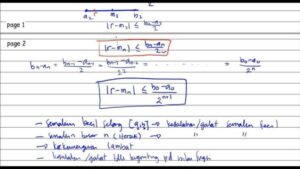 a₂ r m₂ b₂
|r-m₂| ≤ (b₂-a₂)/2
page 1
page 2
|r-mₙ| ≤ (bₙ-aₙ)/2
bₙ-aₙ = (bₙ₋₁-aₙ₋₁)/2 = (bₙ₋₂-aₙ₋₂)/2² = ... = (b₀-a₀)/2ⁿ
|r-mₙ| ≤ (b₀-a₀)/2ⁿ⁺¹
- semakin kecil selang [a,b] → kesalahan/galat semakin kecil
- semakin besar n (iterasi) → " "
- kekonvergenan lambat
- kesalahan/galat tdk bergantung pd nilai fungsi